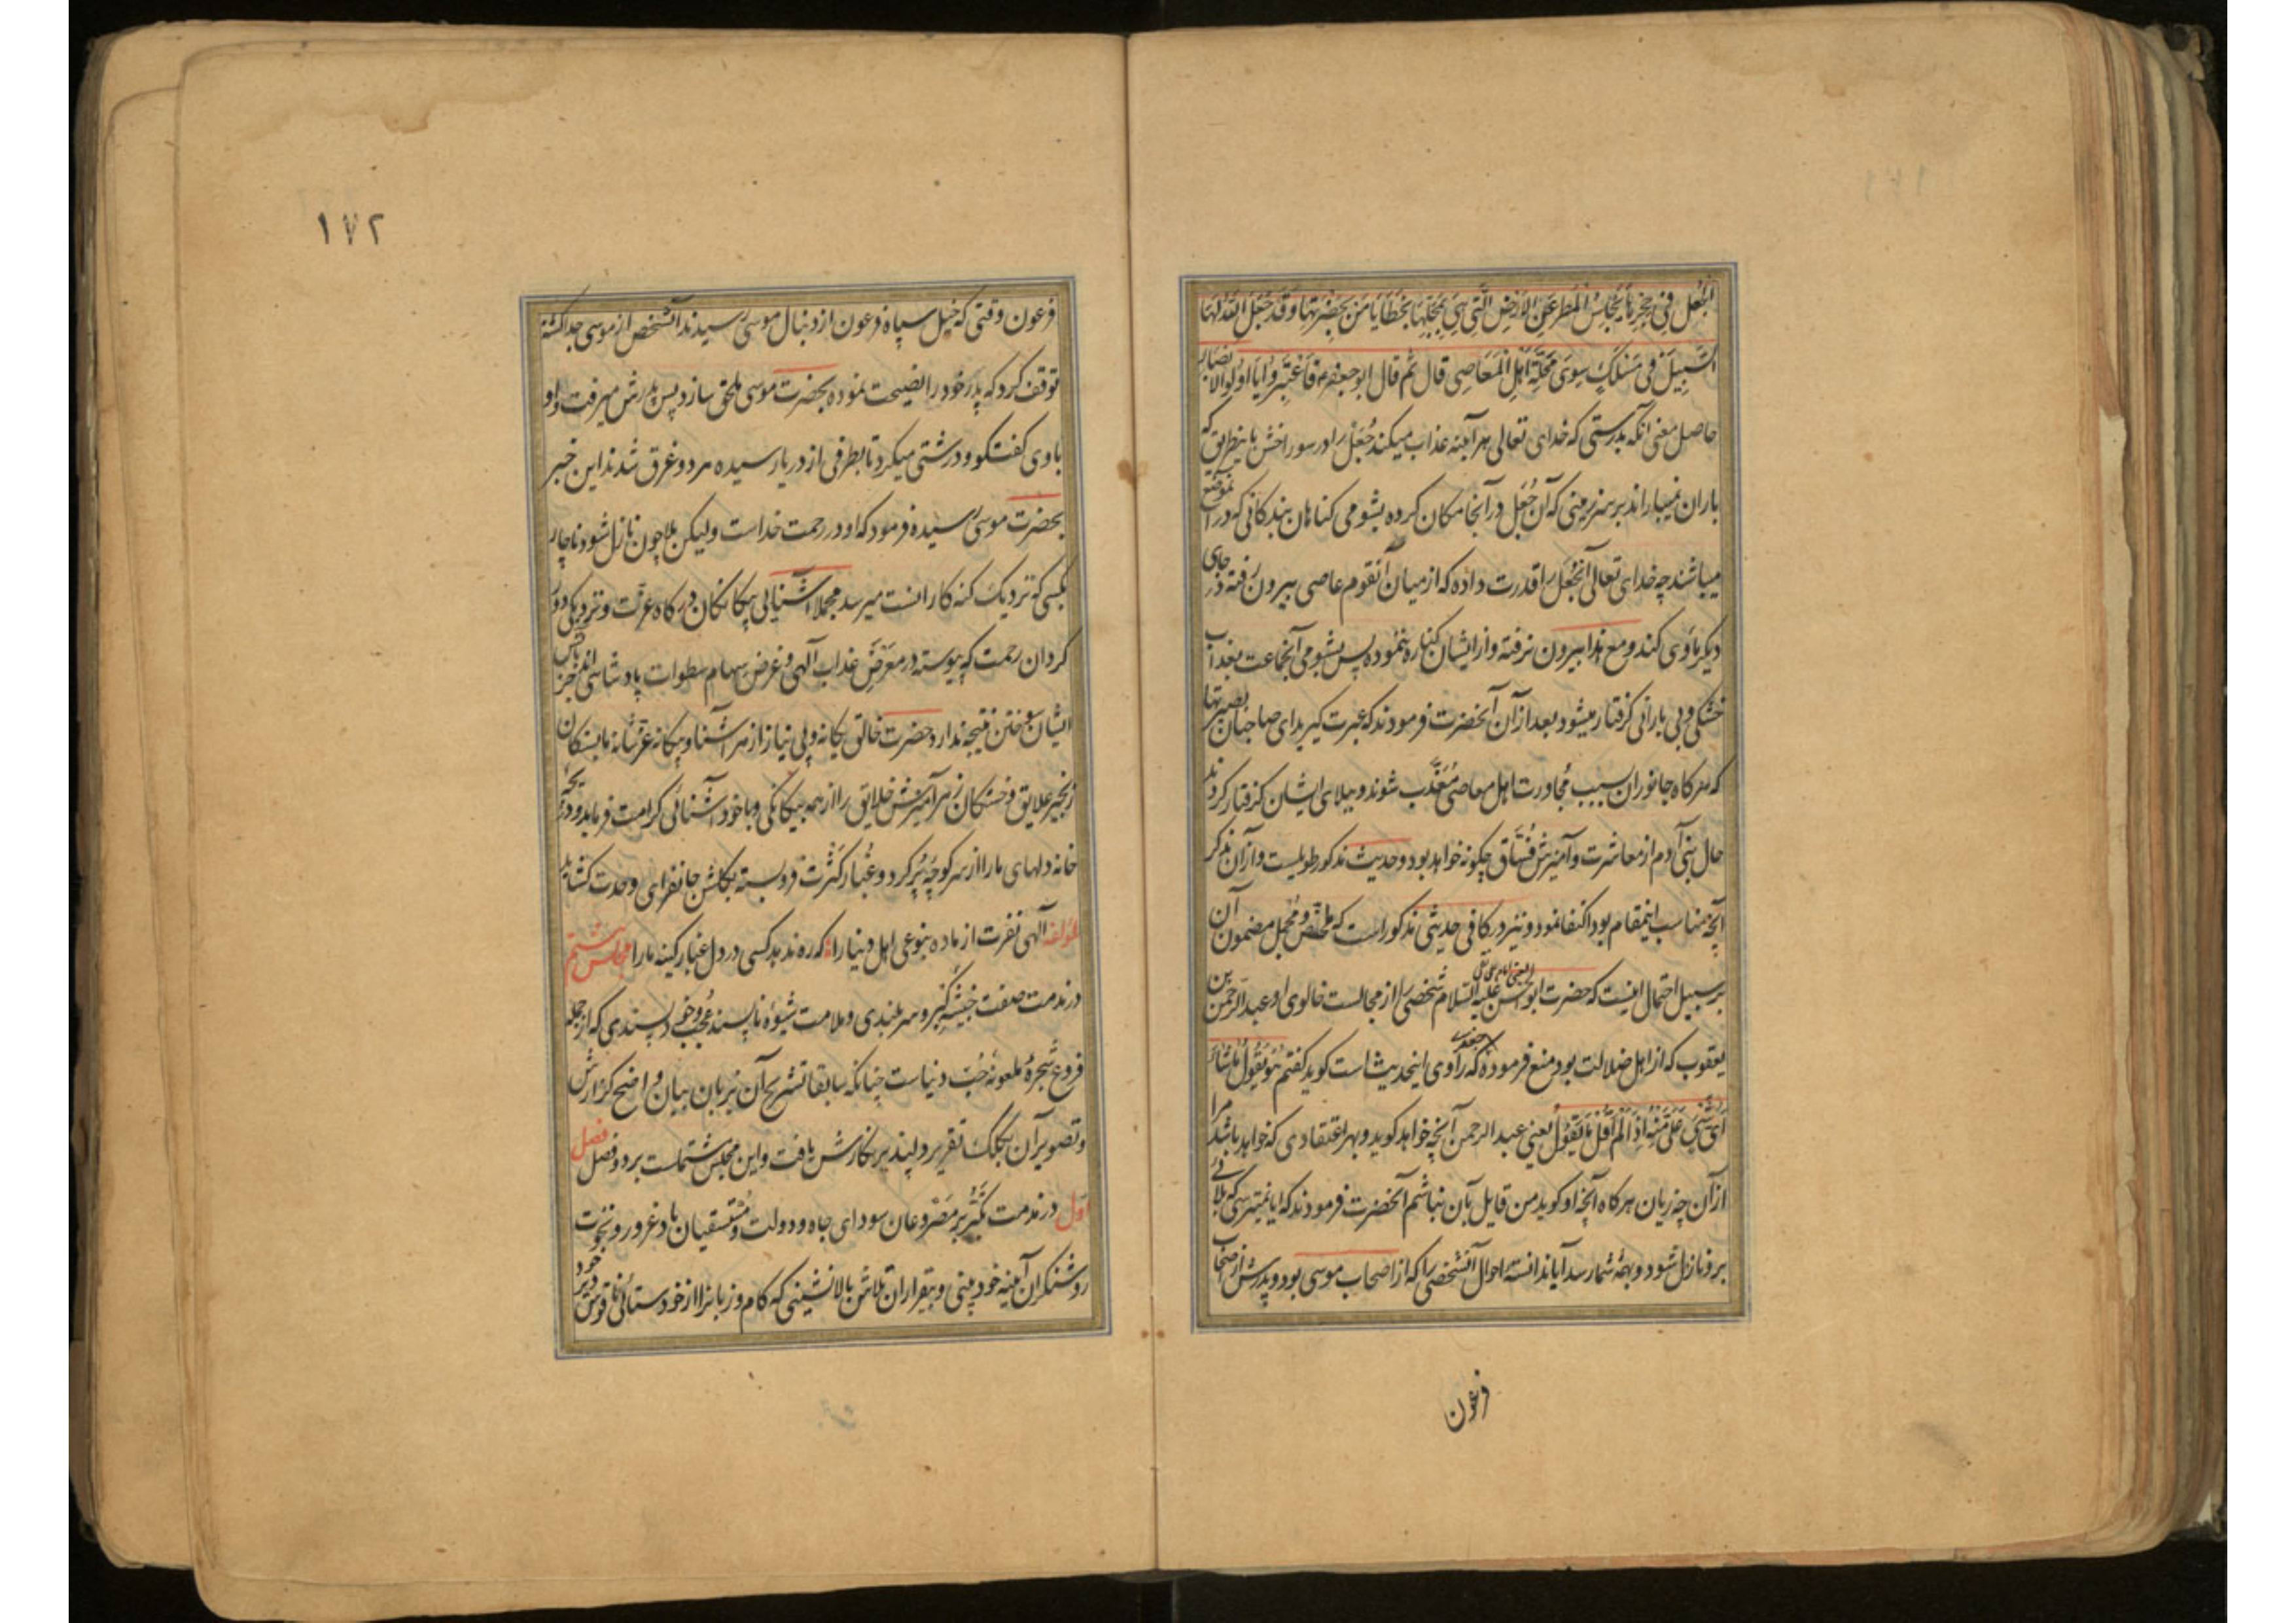 الجعل فی جحرها بحابس المطر عن الارض التی هی بمحلتها بخطایا من بحضرتها و قد جعل الله لها
السبیل فی مسلک سوی محلة اهل المعاصی قال ثم قال ابو جعفر ع فاعتبروا یا اولوالابصار
حاصل معنی انکه بدرستی که خدای تعالی هر آینه عذاب میکند جُعَل را در سوراخش باینطریق که
باران نمیباراند بر سر زمینی که آن جُعَل در آنجا مکان کرده بشومی کناهان بندکانی که در آنموضع
میباشند چه خدای تعالی آنجُعَل را قدرت داده که از میان آنقوم عاصی بیرون رفته در جای
دیکر ماوی کند و مع هذا بیرون نرفته و از ایشان کناره ننموده پس بشومی آنجماعت بعذاب
خشکی و بی بارانی کرفتار میشود بعد از آن آنحضرت فرمودند که عبرت کیرید ای صاحبان بصیرتها
که هر کاه جانوران بسبب مُجاورت اهل معاصی مُعَذَّب شوند و ببلای ایشان کرفتار کردند
حال بنی آدم از معاشرت و آمیزش فُسّاق چکونه خواهد بود و حدیث مذکور طویلست و از آن بذکر
آنچه مناسب اینمقام بود اکتفا نمود و نیز در کافی حدیثی مذکور است که ملخّص و مُجمل مضمون آن
بر سبیل احتمال اینست که حضرت ابوالحسن علیه السّلام شخصی را از مجالست خالوی او عبدالرّحمن بن
یعقوب که از اهل ضلالت بود منع فرموده جعفری که راوی اینحدیث است کوید کفتم هو یقول ما شاء
ای شیء علیّ منه اذا لم اقل ما یقول یعنی عبدالرحمن آنچه خواهد کوید و بهر اعتقادی که خواهد باشد مرا
از آن چه زیان هر کاه آنچه او کوید من قایل بآن نباشم آنحضرت فرمودند که ایا نمیترسی که بلائی
برو نازل شود و بهمهٔ شما رسد آیا ندانستهٔ احوال آنشخصی را که از اصحاب موسی بود و پدرش از اصحاب
فرعون
۱۷۲
فرعون وقتی که خیل سپاه فرعون از دنبال موسی رسیدند آنشخص از موسی جدا کشته
توقف کرد که پدر خود را نصیحت نموده بحضرت موسی ملحق سازد پس پدرش میرفت و او
با وی کفتکو و درشتی میکرد تا بطرفی از دریا رسیده هر دو غرق شدند این خبر
بحضرت موسی رسیده فرمود که او در رحمت خداست ولیکن بلا چون نازل شود ناچار
بکسی که نزدیک کنه کارانست میرسد مجملا آشنایی بیکانکان درکاه عزّت و نزدیکی دور
کردان رحمت که پیوسته در معرَض عذاب آلهی و غرض سهام سطوات پادشاهی اند جز بآتش
ایشان سوختن نتیجه ندارد حضرت خالق یکانه و بی نیاز از هر آشنا و بیکانه عزّ شانه ما بستکان
زنجیر علایق و خستکان زهر آمیزش خلایق را از همه بیکانکی و با خود آشنائی کرامت فرماید و دریچهٔ
خانه دلهای ما را از هر کوچهٔ پُر کرد و غُبار کَثْرت فرو بسته بکلشن جانفزای وحدت کشاید
لمؤلفه آلهی نفرت از ما ده بنوعی اهل دنیا را که ره ندهد کسی در دل غبار کینه ما را مجلس هشتم
در مذمت صفت خبیثهٔ کبر و سر بلندی و ملامت شیوهٔ ناپسند عُجب و خود پسندی که از جمله
فروع شجرهٔ ملعونهٔ حُبّ دنیاست چنانکه سابقا تشریح آن بزبان بیان واضح کزارش
و تصویر آن بکلک تقریر دلپذیر نکارش یافت و این مجلس مشتملست بر دو فصل فصل
اوّل در مذمت تکبّر بر مَصْروعان سودای جاه و دولت و مُسْتسقیان باد غرور و نخوت
روشنکران آینه خود بینی و بیقراران تلاش بالانشینی که کام و زبانرا از خود ستائی ناقوس دیر خود